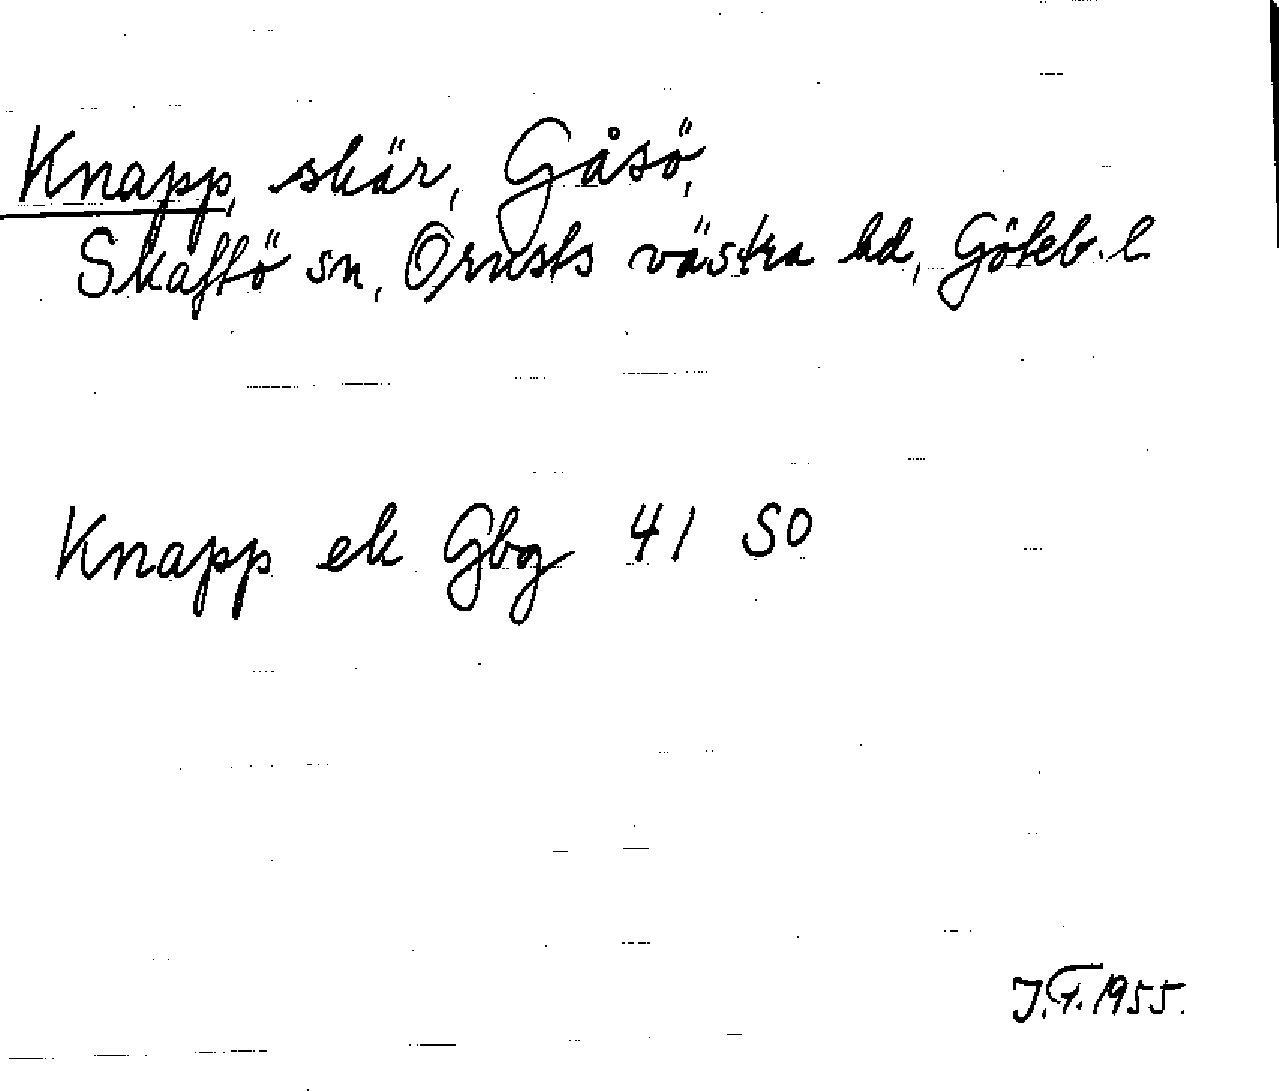 Knapp, skär, Gåsö,
Skaftö sn, Orusts västra hd, Göteb. l
Knapp ek Gbg 41 SO
J.F. 1955.